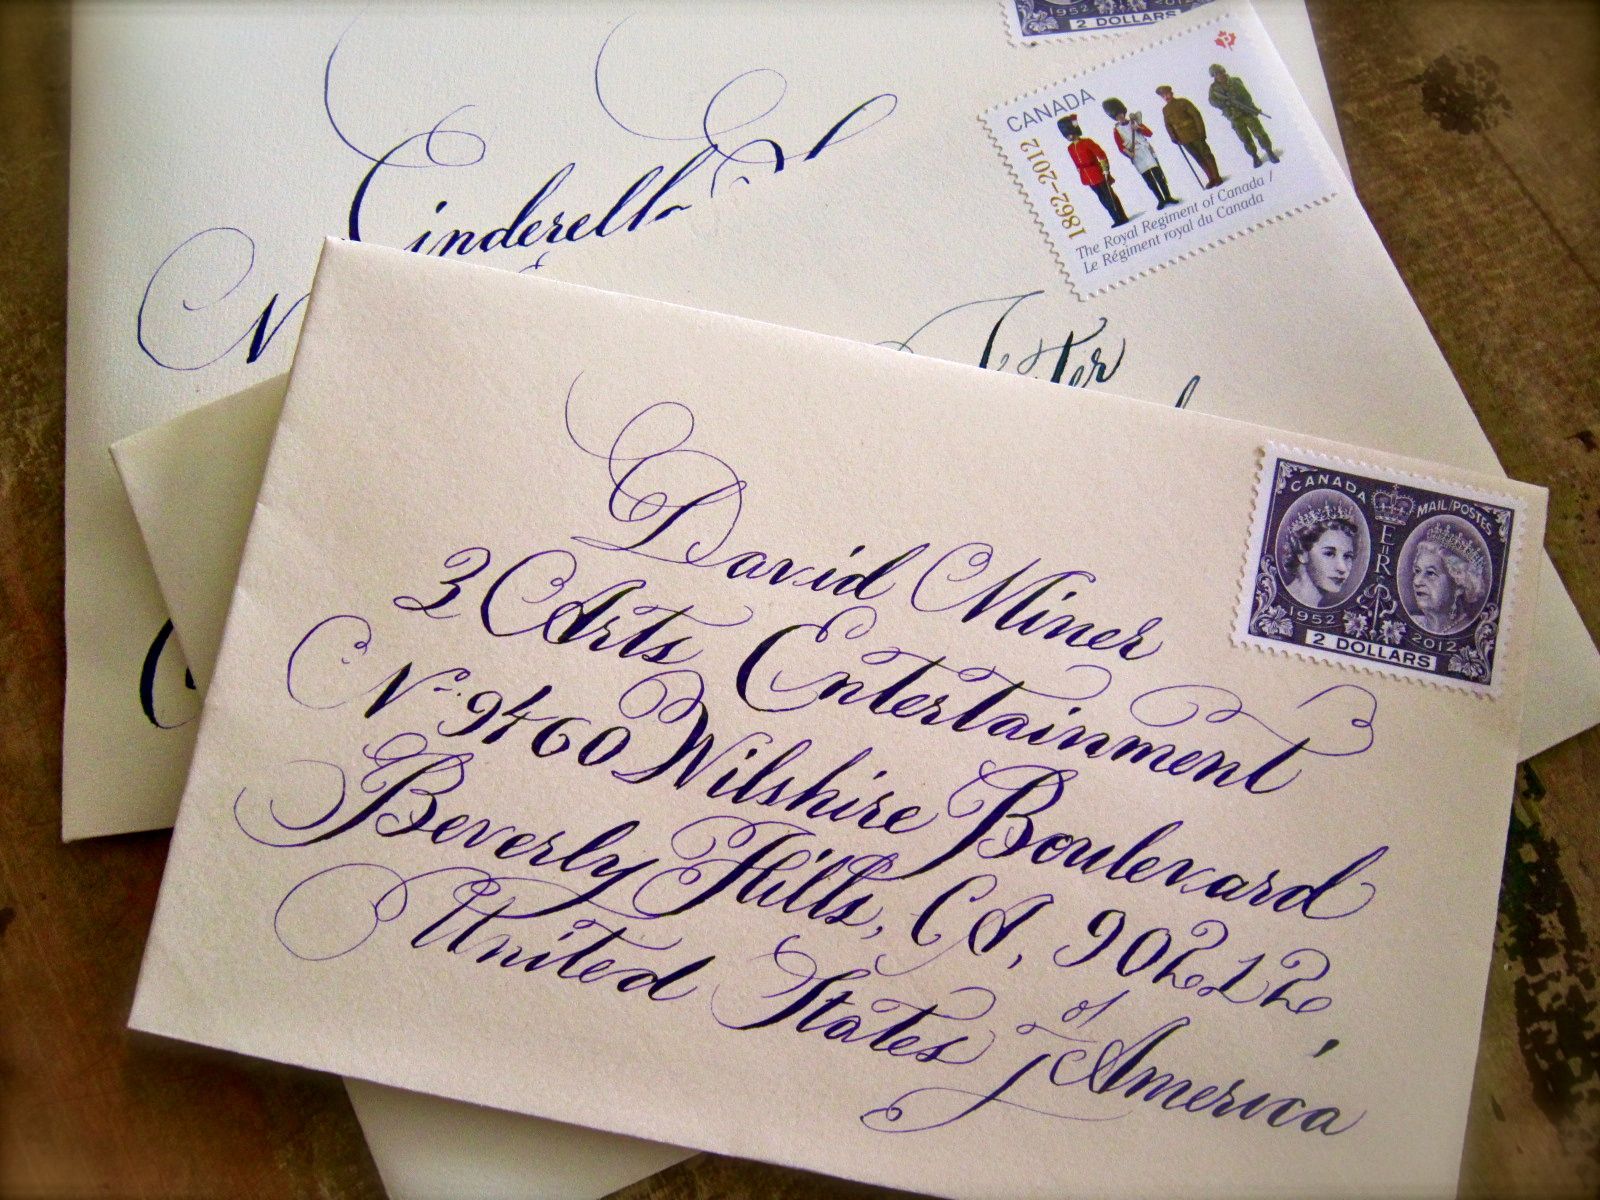 1952 2012
2 DOLLARS
CANADA
1862-2012
The Royal Regiment of Canada /
Le Régiment royal du Canada
Cinderella
David Miner
3 Arts Entertainment
No. 9460 Wilshire Boulevard
Beverly Hills, CA, 90212,
United States of America
CANADA MAIL/POSTES
E II R
1952 2012
2 DOLLARS